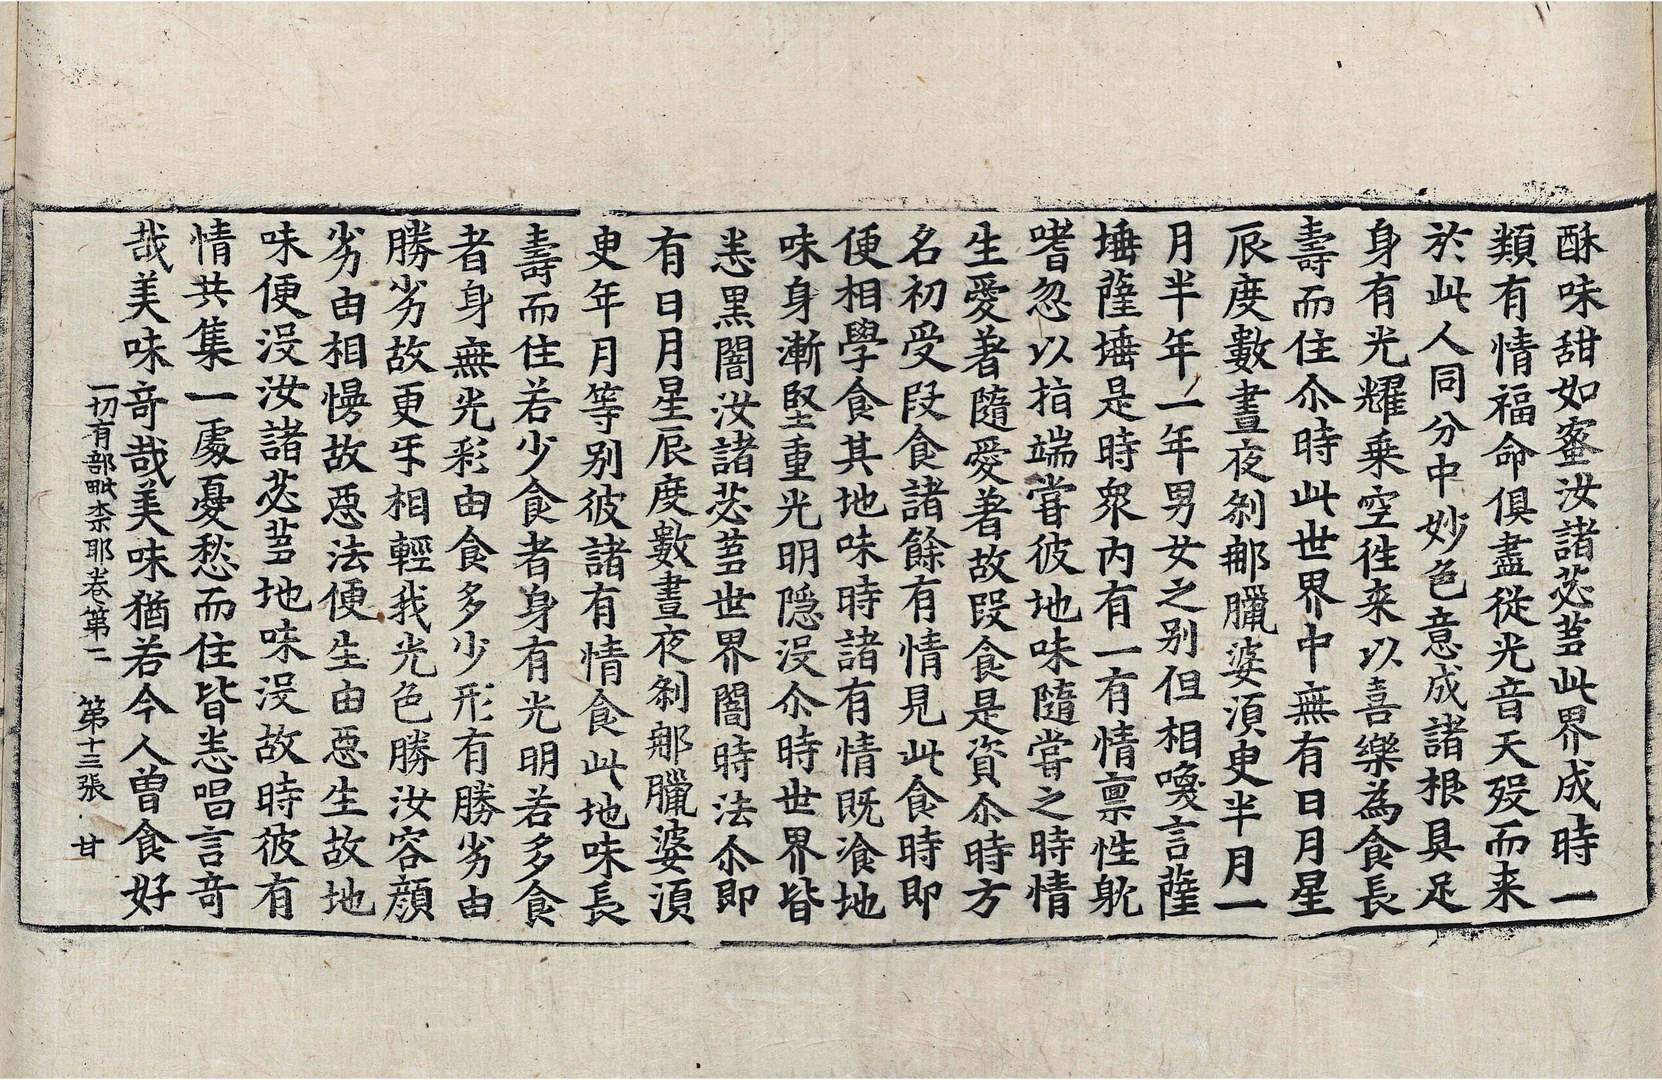 酥味甜如蜜汝諸苾芻此界成時一
類有情福命俱盡從光音天歿而来
於此人同分中妙色意成諸根具足
身有光耀乗空徃来以喜樂為食長
壽而住尒時此世界中無有日月星
辰度數晝夜剎那臘婆湏臾半月一
月半年一年男女之别但相喚言薩
埵薩埵是時衆内有一有情禀性躭
嗜忽以指端甞彼地味隨甞之時情
生愛著隨愛著故段食是資尒時方
名初受段食諸餘有情見此食時即
便相學食其地味時諸有情既飡地
味身漸堅重光明隠没尒時世界皆
悉黒闇汝諸苾芻世界闇時法尒即
有日月星辰度數晝夜剎那臘婆湏
臾年月等别彼諸有情食此地味長
壽而住若少食者身有光明若多食
者身無光彩由食多少形有勝劣由
勝劣故更㸦相輕我光色勝汝容顔
劣由相慢故惡法便生由惡生故地
味便没汝諸苾芻地味没故時彼有
情共集一處憂愁而住皆悉唱言竒
哉美味竒哉美味猶若今人曽食好
一切有部毗柰耶卷第二　第十三張　甘